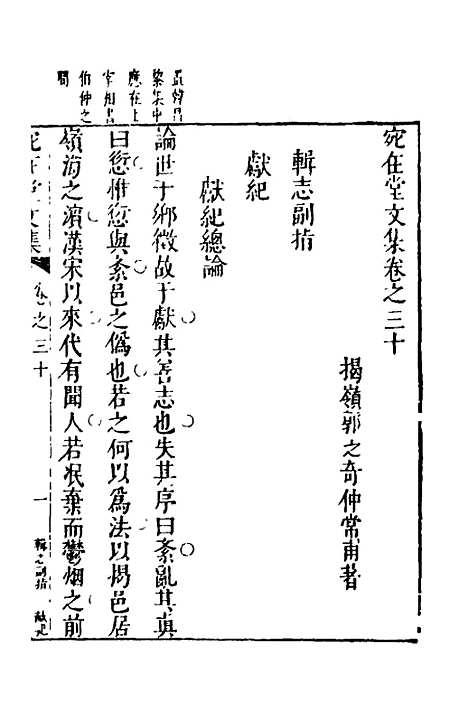 宛在堂文集卷之三十
揭嶺郭之奇仲常甫著
輯志副指
獻紀
獻紀總論
論世于鄉徵故于獻其善志也失其序曰紊亂其眞
曰愆惟愆與紊邑之僞也若之何以爲法以揭邑居
嶺海之濵漢宋以來代有聞人若泯棄而鬱烟之前
黎集中
應在上
宰相書
伯仲之
間
宛在堂文集
卷之三十
一
輯志副指
獻紀